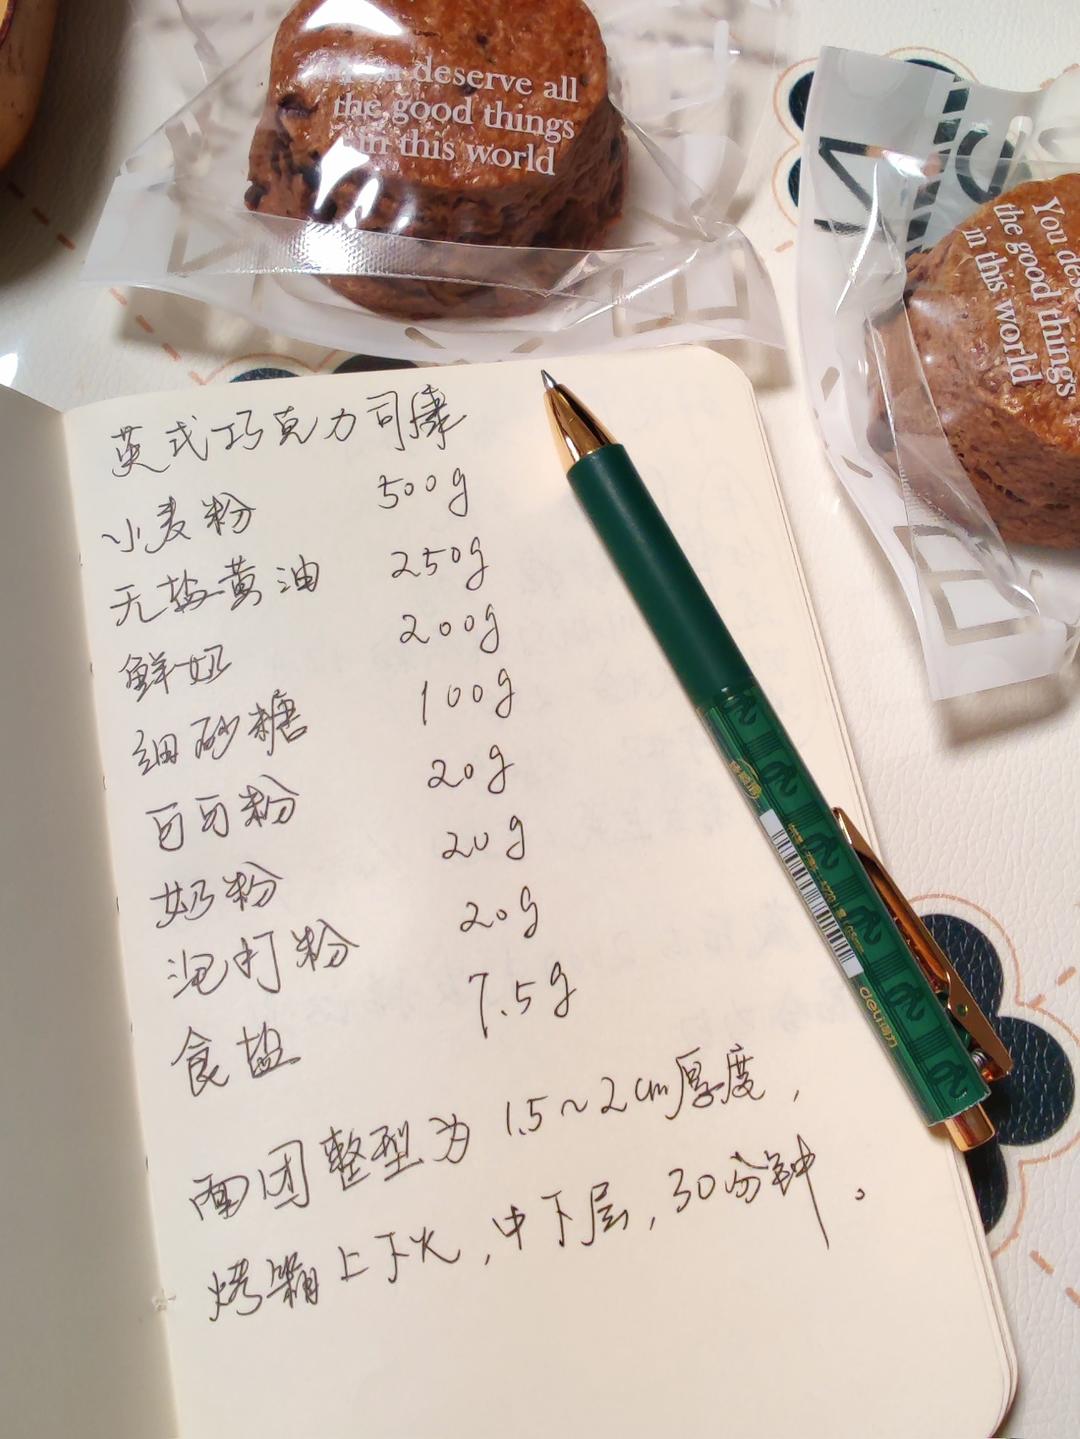 You deserve all
the good things
in this world
You des
the good things
in this world
英式巧克力司康
小麦粉 500g
无盐黄油 250g
鲜奶 200g
细砂糖 100g
可可粉 20g
奶粉 20g
泡打粉 20g
食盐 7.5g
面团整型为 1.5~2cm厚度,
烤箱上下火,中下层,30分钟。
deli得力